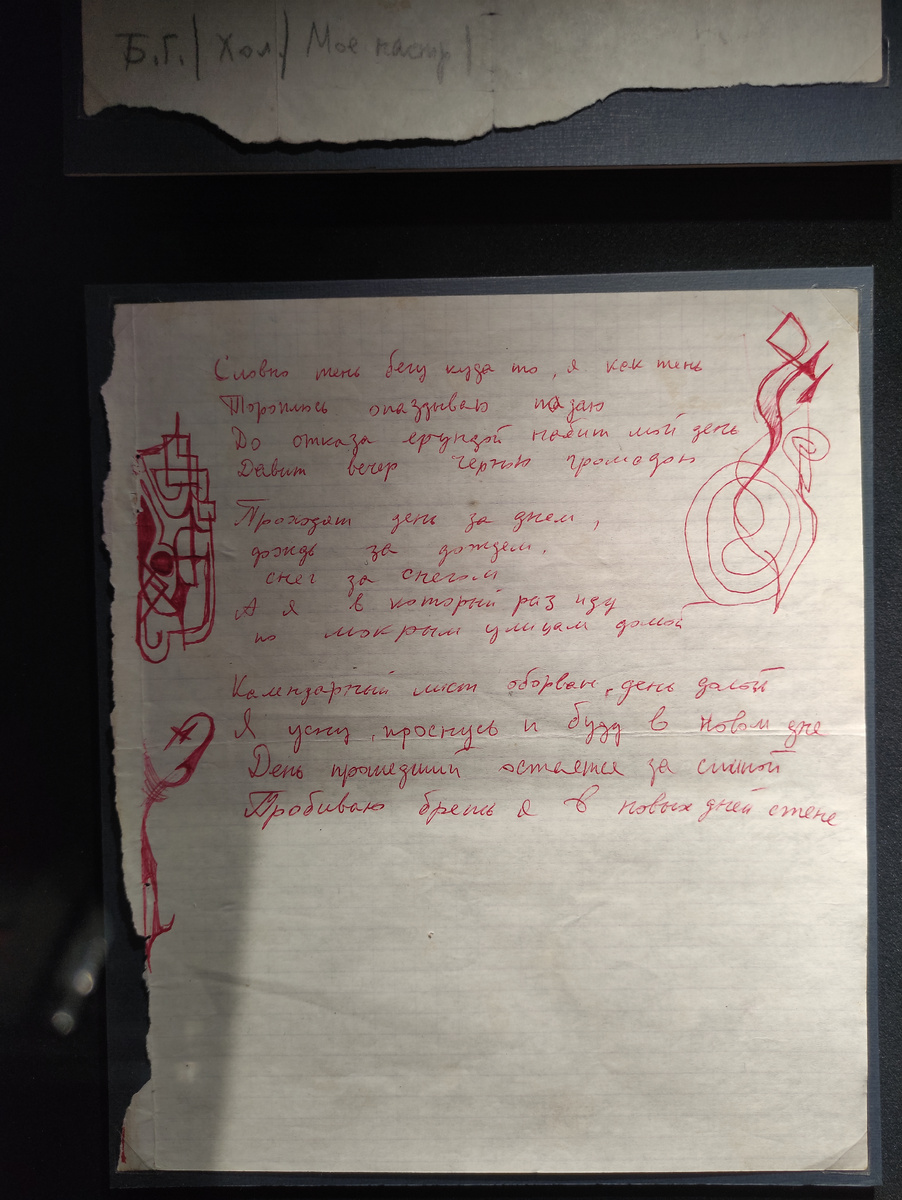 Б.Г. / Хол. / Мое настр /
Словно тень бегу куда то, я как тень
Тороплюсь опаздываю падаю
До отказа ерундой набит мой день
Давит вечер черною громадою
Проходят день за днем,
дождь за дождем,
снег за снегом
А я в который раз иду
по мокрым улицам домой
Календарный лист оборван, день долой
Я усну, проснусь и буду в новом дне
День прошедший остается за спиной
Пробиваю брешь я в новых дней стене